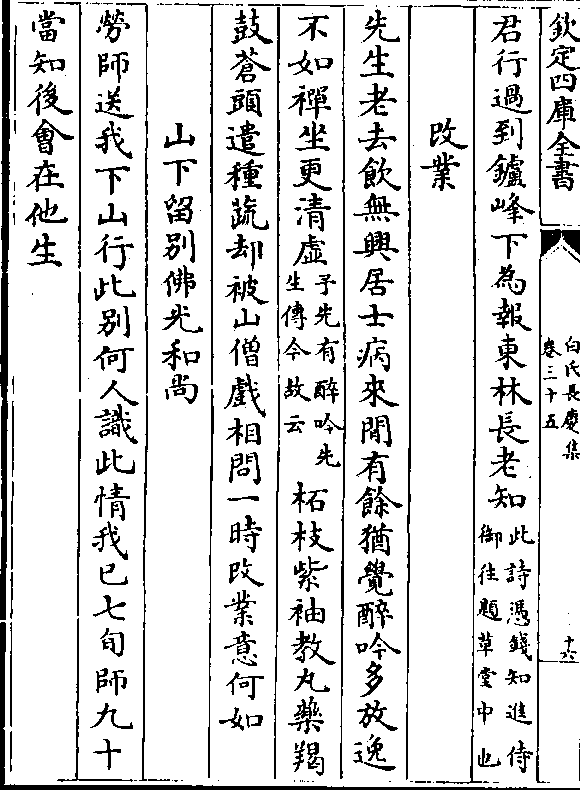 欽定四庫全書
白氏長慶集
卷三十五
十六
君行過到鑪峰下為報東林長老知此詩憑錢知進侍
御往題草堂中也
改業
先生老去飲無興居士病來閒有餘猶覺醉吟多放逸
不如禪坐更清虛予先有醉吟先
生傳今故云柘枝紫袖教丸藥羯
鼓蒼頭遣種蔬却被山僧戲相問一時改業意何如
山下留別佛光和尚
勞師送我下山行此別何人識此情我已七旬師九十
當知後會在他生